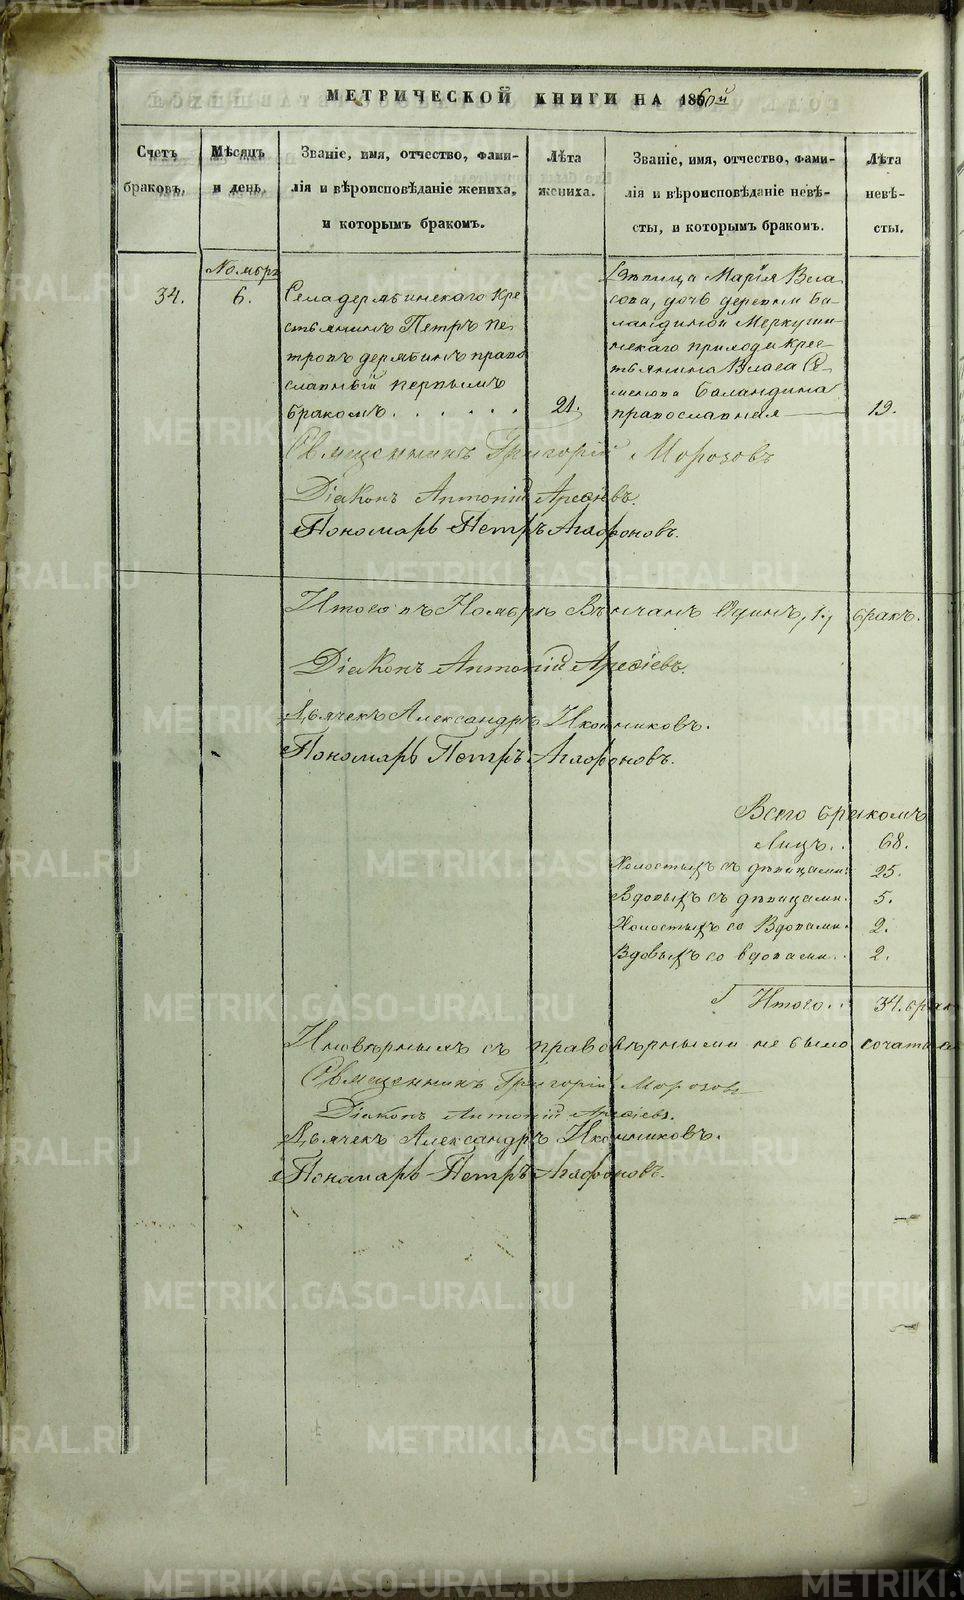 МЕТРИЧЕСКОЙ КНИГИ НА 1860й
Счетъ браковъ.
Мѣсяцъ и день.
Званіе, имя, отчество, фами-
лія и вѣроисповѣданіе жениха,
и которымъ бракомъ.
Лѣта жениха.
Званіе, имя, отчество, фами-
лія и вѣроисповѣданіе невѣ-
сты, и которымъ бракомъ.
Лѣта невѣ-
сты.
Ноябрь
34.
6.
Села дерябинскаго кре
стьянинъ Петръ Пе
тровъ дерябинъ право
славный первымъ
бракомъ . . . . . .
21.
Дѣвица Марія Вла
сова, дочь деревни Ба
ландиной Меркушин
скаго прихода крес
тьянина Власа Се
менова Баландина
православная
19.
Священникъ Григорій Морозовъ
Діаконъ Антоній Арефіевъ.
Пономарь Петръ Агафоновъ.
Итого въ Ноябрѣ Вѣнчанъ Одинъ, 1, бракъ.
Діаконъ Антоній Арефіевъ.
Дьячекъ Александръ Иконниковъ.
Пономарь Петръ Агафоновъ.
Всего бракомъ
Лицъ . . 68.
Холостыхъ съ дѣвицами. 25.
Вдовыхъ съ дѣвицами. 5.
Холостыхъ со Вдовами. 2.
Вдовыхъ со вдовами . . 2.
Итого . . 34. брак
Иновѣрныхъ съ правовѣрными не было
Священникъ Григорій Морозовъ
Діаконъ Антоній Арефіевъ.
Дьячекъ Александръ Иконниковъ.
Пономарь Петръ Агафоновъ.
METRIKI.GASO-URAL.RU